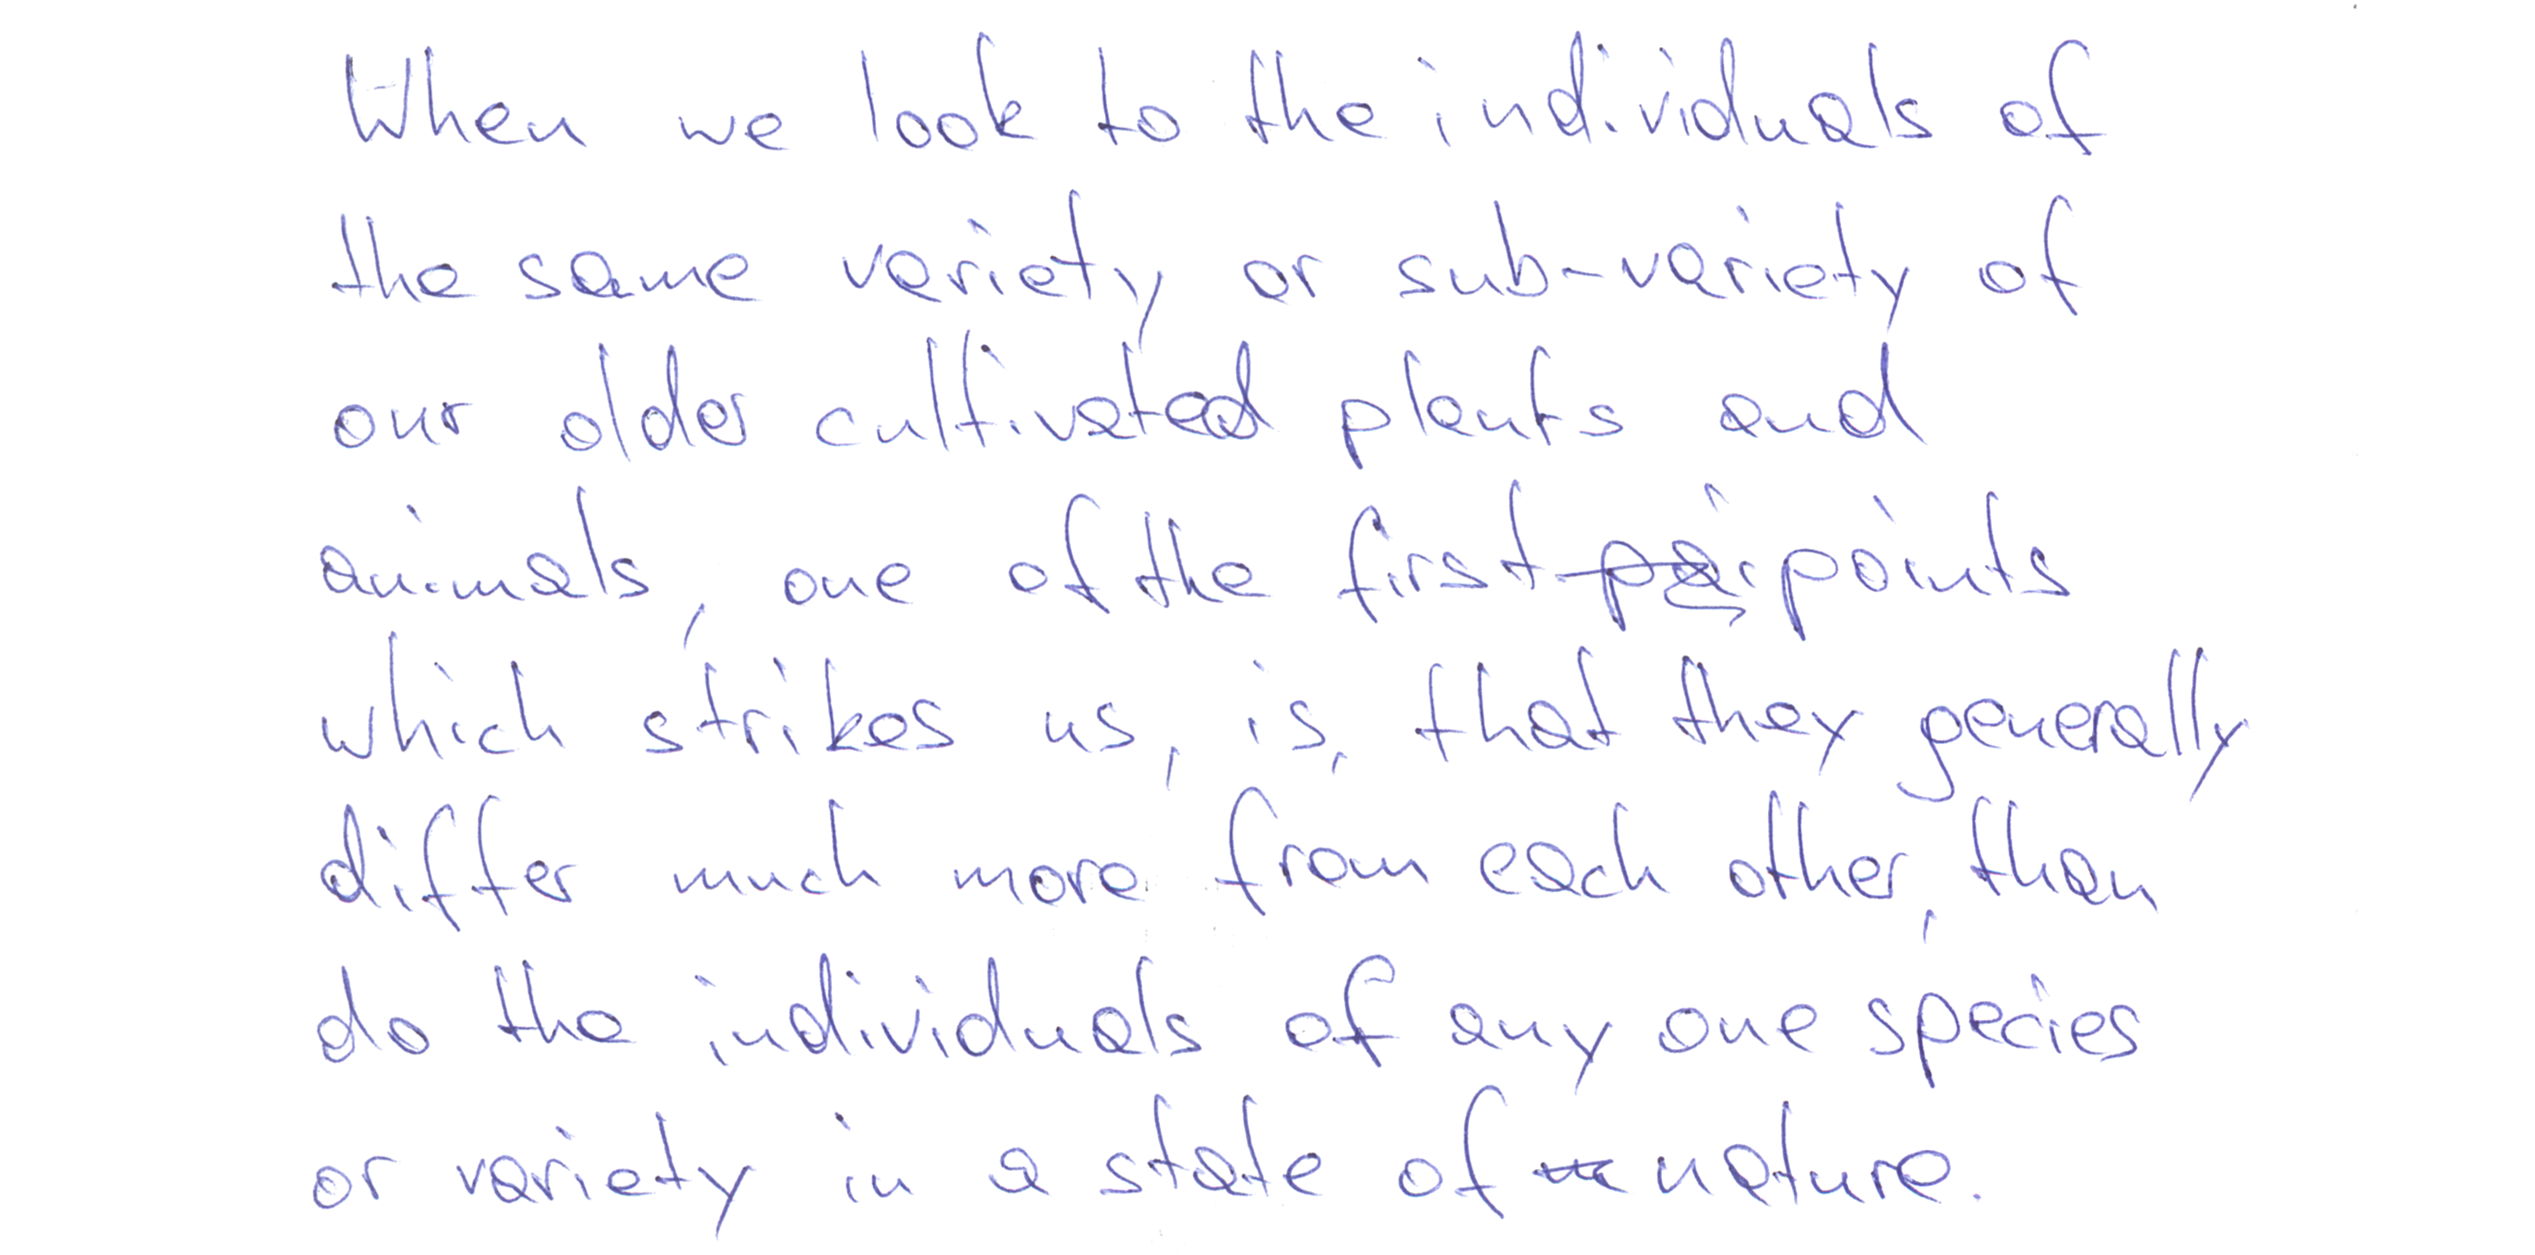 When we look to the individuals of
the same variety or sub-variety of
our older cultivated plants and
animals, one of the first points
which strikes us, is, that they generally
differ much more from each other, than
do the individuals of any one species
or variety in a state of nature.